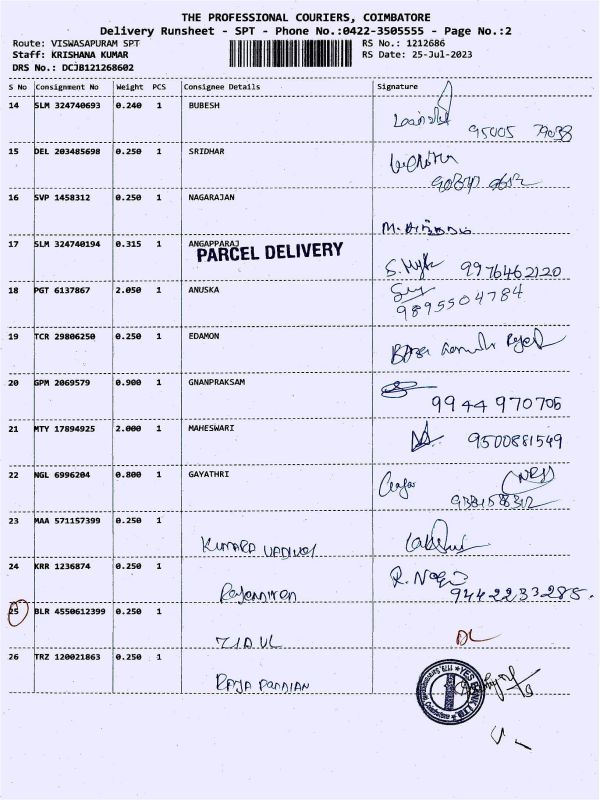 THE PROFESSIONAL COURIERS, COIMBATORE
Delivery Runsheet - SPT - Phone No.:0422-3505555 - Page No.:2
Route: VISWASAPURAM SPT RS No.: 1212686
Staff: KRISHANA KUMAR RS Date: 25-Jul-2023
DRS No.: DCJB121268602
S No Consignment No Weight PCS Consignee Details Signature
14 SLM 324740693 0.240 1 BUBESH
95005 79038
15 DEL 203485698 0.250 1 SRIDHAR
16 SVP 1458312 0.250 1 NAGARAJAN
17 SLM 324740194 0.315 1 ANGAPPARAJ
PARCEL DELIVERY
9976462120
18 PGT 6137867 2.050 1 ANUSKA
9895504784
19 TCR 29806250 0.250 1 EDAMON
20 GPM 2069579 0.900 1 GNANPRAKSAM
9944 970706
21 MTY 17894925 2.000 1 MAHESWARI
9500881549
22 NGL 6996204 0.800 1 GAYATHRI
23 MAA 571157399 0.250 1
KUMARA VADIVEL
24 KRR 1236874 0.250 1
9442233285.
25 BLR 4550612399 0.250 1
ZIAUL DL
26 TRZ 120021863 0.250 1
RAJA PANDIAN
YES BANK LTD